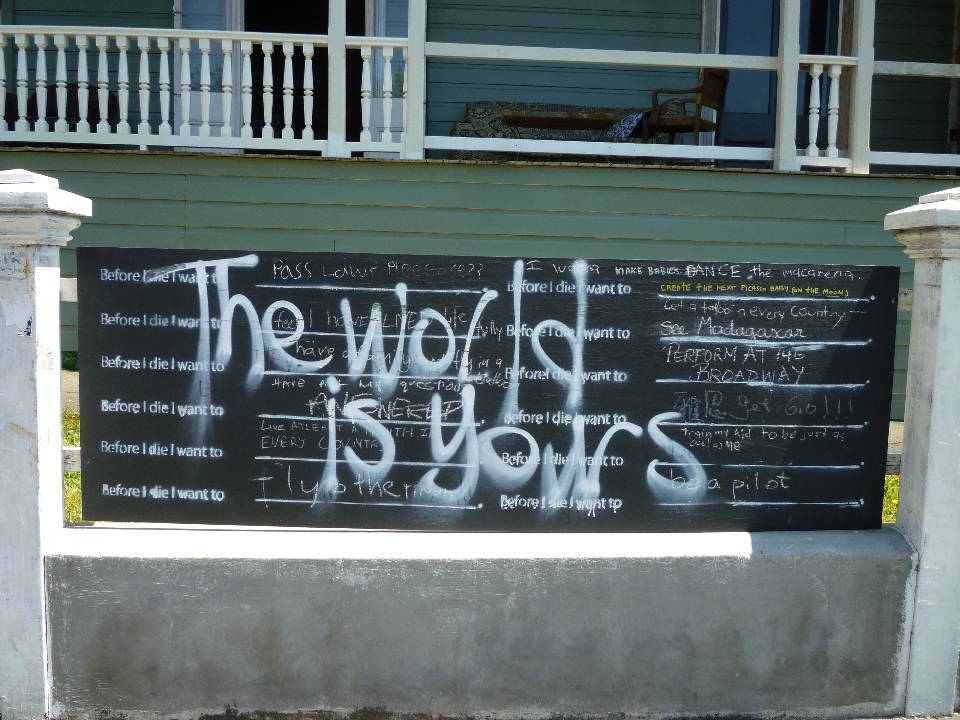 The world
is yours
Before I die I want to
Pass Laws
Before I die I want to
feel I have LIVED life fully
Before I die I want to
have a family
Before I die I want to
HAVE ALL MY questions
ANSWERED
Before I die I want to
LIVE ATLEAST A MONTH IN
EVERY COUNTRY
Before I die I want to
Fly to the moon
Before I die I want to
I wanna MAKE BABIES. DANCE the macarena.
CREATE THE NEXT PICASSO BABY. (ON THE MOON)
Before I die I want to
Get a tattoo in every Country
See Madagascar
Before I die I want to
PERFORM AT THE
BROADWAY
Before I die I want to
get
Before I die I want to
Train my kid to be just as
cool as me
Before I die I want to
be a pilot